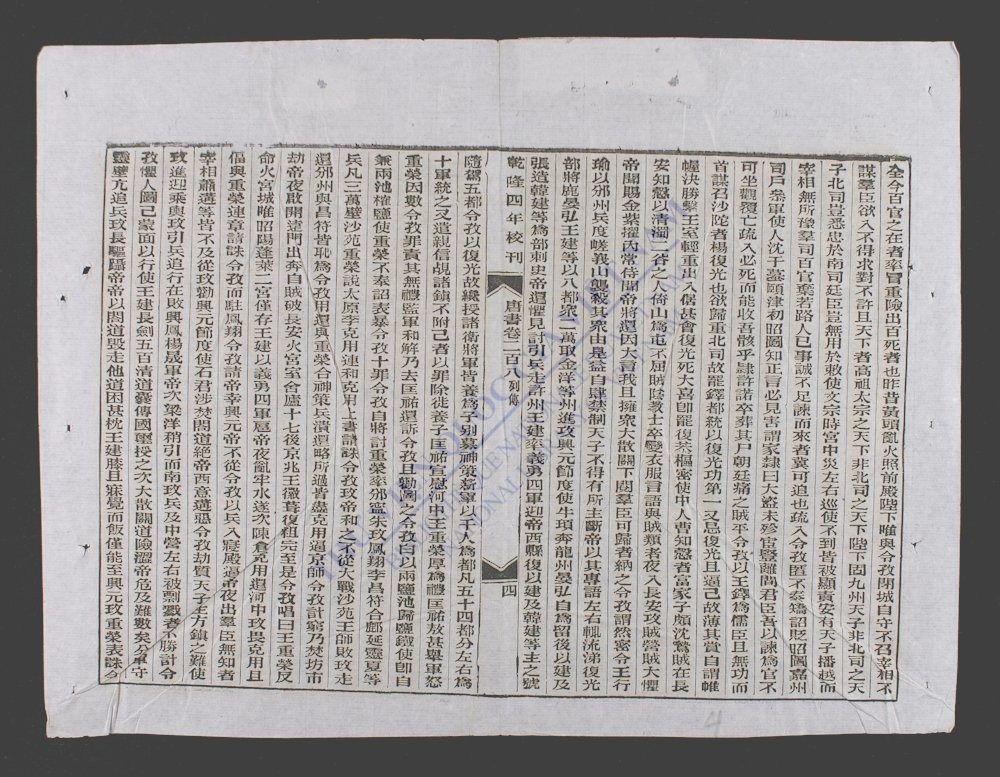 全今百官之在者率冒重險出百死者也昨昔黃頭亂火照前殿陛下唯與令孜閉城自守不召宰相不
謀羣臣欲入不得求對不許且天下者高祖太宗之天下非北司之天下陛下固九州天子非北司之天
子北司豈悉忠於南司廷臣豈無用於敕使文宗時宮中災左右巡使不到皆被顯責安有天子播越而
宰相無所豫羣司百官棄若路人已事誠不足諫而來者冀可追也疏入令孜匿不奏矯詔貶昭圖嘉州
司戶參軍使人沈于蟇頤津初昭圖知正言必見害謂家隸曰大盜未殄宦豎離間君臣吾以諫爲官不
可坐觀覆亡疏入必死而能收吾骸乎隸許諾卒葬其尸朝廷痛之賊平令孜以王鐸爲儒臣且無功而
首謀召沙陀者楊復光也欲歸重北司故罷鐸都統以復光功第一又忌復光且逼己故薄其賞自謂帷
幄決勝擊王室輕重出入倨甚會復光死大喜卽罷復恭樞密使中人曹知愨者富家子頗沈鷙賊在長
安知愨以清濁二谷之人倚山爲屯不屈賊陰教士卒變衣服言語與賊類者夜入長安攻賊營賊大懼
帝聞賜金紫擢內常侍聞帝將還因大言我且擁衆大散關下閱羣臣可歸者納之令孜謂然密令王行
瑜以邠州兵度嵯峩山襲殺其衆由是益自肆禁制天子不得有所主斷帝以其專語左右輒流涕復光
部將鹿晏弘王建等以八都衆二萬取金洋等州進攻興元節度使牛頊奔龍州晏弘自爲留後以建及
張造韓建等爲部刺史帝還懼見討引兵走許州王建率義勇四軍迎帝西縣復以建及韓建等主之號
乾隆四年校刊 唐書卷二百八 列傳 四
隨駕五都令孜以復光故纔授諸衛將軍皆養爲子別募神策新軍以千人爲都凡五十四都分左右爲
十軍統之又遣親信覘諸鎮不附己者以罪除徙養子匡祐宣慰河中王重榮厚爲禮匡祐敖甚舉軍怒
重榮因數令孜罪責其無禮監軍和解乃去匡祐還訴令孜且勸圖之令孜白以兩鹽池歸鹽鐵使卽自
兼兩池榷鹽使重榮不奉詔表暴令孜十罪令孜自將討重榮率邠寧朱玫鳳翔李昌符合鄜延靈夏等
兵凡三萬壁沙苑重榮說太原李克用連和克用上書請誅令孜玫帝和之不從大戰沙苑王師敗玫走
還邠州與昌符皆恥爲令孜用還與重榮合神策兵潰還略所過皆盡克用逼京師令孜計窮乃焚坊市
劫帝夜啟開遠門出奔自賊破長安火宮室舍廬十七後京兆王徽葺復粗完至是令孜唱曰王重榮反
命火宮城唯昭陽蓬萊二宮僅存王建以義勇四軍扈帝夜亂牢水遂次陳倉克用還河中玫畏克用且
偪與重榮連章請誅令孜而駐鳳翔令孜請帝幸興元帝不從令孜以兵入寢殿逼帝夜出羣臣無知者
宰相蕭遘等皆不及從玫勸興元節度使石君涉焚閣道絶帝西意遘惡令孜劫質天子生方鎮之難使
玫進迎乘輿玫引兵追行在敗興鳳楊晟軍帝次梁洋稍引而南玫兵及中營左右被剽戮者不勝計令
孜懼人圖己蒙面以行使王建長劍五百清道囊傳國璽授之次大散關道險澀帝危及難數矣分軍守
靈壁亢追兵玫長驅躡帝帝以閣道毀走他道困甚枕王建膝且寐覺而飯僅能至興元玫重榮表誅令